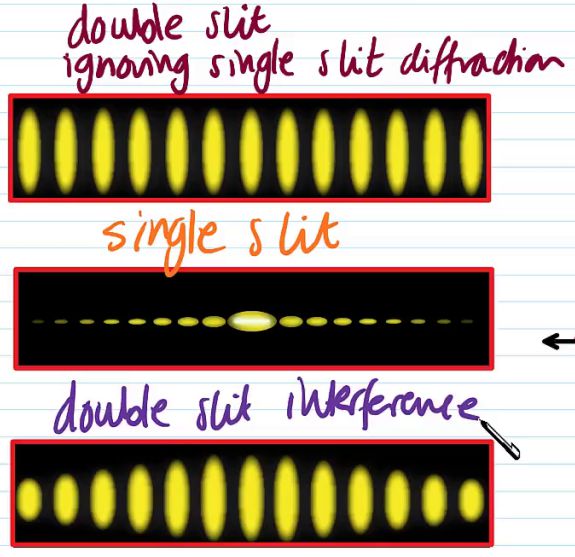 double slit
ignoring single slit diffraction
single slit
double slit interference